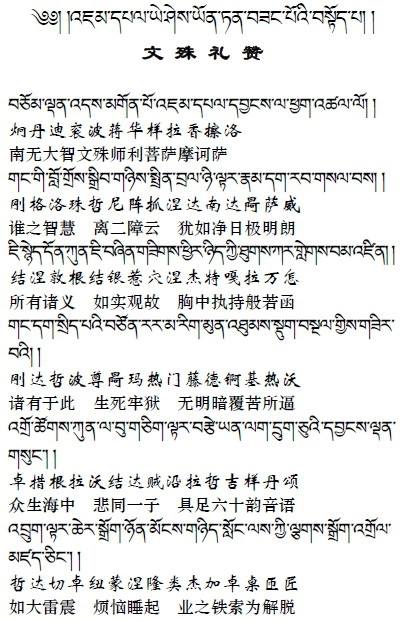 ༄༅། །འཇམ་དཔལ་ཡེ་ཤེས་ཡོན་ཏན་བཟང་པོའི་བསྟོད་པ། །
文殊礼赞
བཅོམ་ལྡན་འདས་མགོན་པོ་འཇམ་དཔལ་དབྱངས་ལ་ཕྱག་འཚལ་ལོ། །
炯丹迪衮波蒋华样拉香擦洛
南无大智文殊师利菩萨摩诃萨
གང་གི་བློ་གྲོས་སྒྲིབ་གཉིས་སྤྲིན་བྲལ་ཉི་ལྟར་རྣམ་དག་རབ་གསལ་བས། །
刚格洛珠哲尼阵抓涅达南达咼萨威
谁之智慧 离二障云 犹如净日极明朗
ཇི་སྙེད་དོན་ཀུན་ཇི་བཞིན་གཟིགས་ཕྱིར་ཉིད་ཀྱི་ཐུགས་ཀར་གླེགས་བམ་འཛིན། །
结涅敦根结银惹穴涅杰特嘎拉万怎
所有诸义 如实观故 胸中执持般若函
གང་དག་སྲིད་པའི་བཙོན་རར་མ་རིག་མུན་འཐུམས་སྡུག་བསྔལ་གྱིས་གཟིར་
བའི། །
刚达哲波尊咼玛热门藤德锕基热沃
诸有于此 生死牢狱 无明暗覆苦所逼
འགྲོ་ཚོགས་ཀུན་ལ་བུ་གཅིག་ལྟར་བརྩེ་ཡན་ལག་དྲུག་ཅུའི་དབྱངས་ལྡན་
གསུང་། །
卓措根拉沃结达贼沿拉哲吉样丹颂
众生海中 悲同一子 具足六十韵音语
འབྲུག་ལྟར་ཆེར་སྒྲོག་ཉོན་མོངས་གཉིད་སློང་ལས་ཀྱི་ལྕགས་སྒྲོག་འགྲོལ་
མཛད་ཅིང་། །
哲达切卓纽蒙涅隆类杰加卓桌匝匠
如大雷震 烦恼睡起 业之铁索为解脱